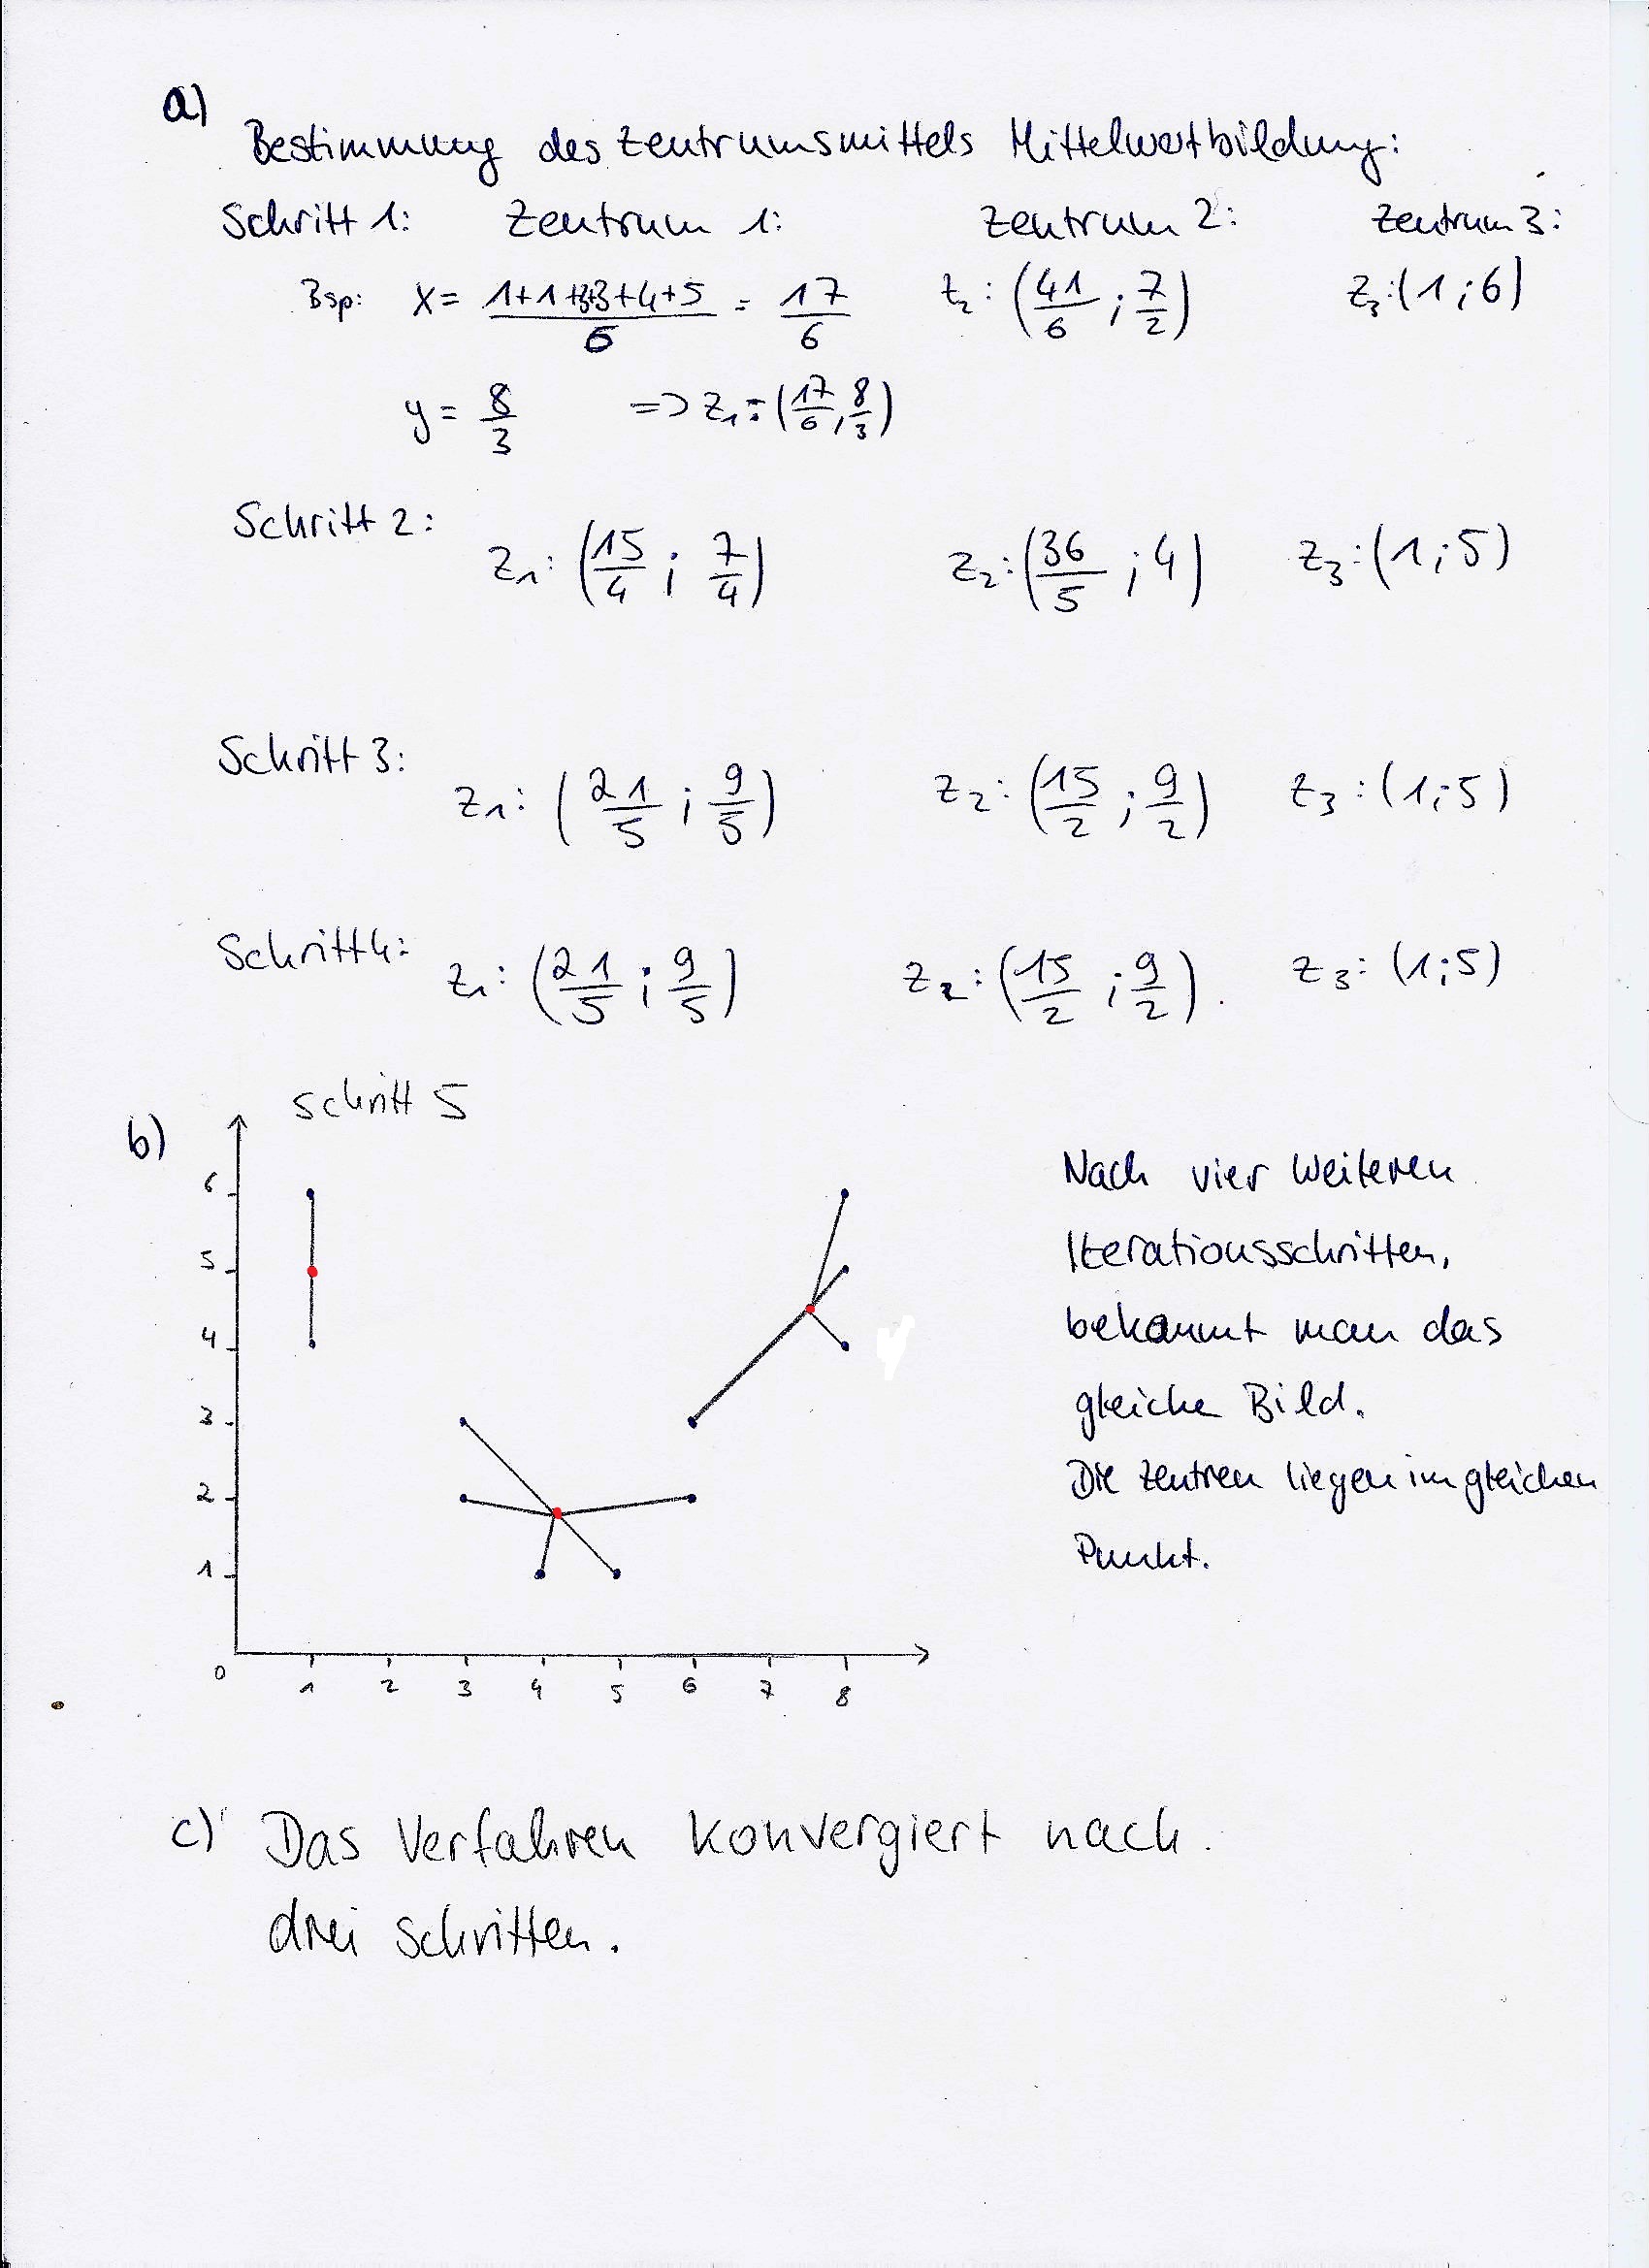 a)
Bestimmung des Zentrumsmittels Mittelwertbildung:
Schritt 1: Zentrum 1: Zentrum 2: Zentrum 3:
Bsp: x = (1+1+3+3+4+5)/6 = 17/6 z₂: (41/6 ; 7/2) z₃: (1 ; 6)
y = 8/3 => z₁ = (17/6 , 8/3)
Schritt 2:
z₁: (15/4 ; 7/4) z₂: (36/5 ; 4) z₃: (1 ; 5)
Schritt 3:
z₁: (21/5 ; 9/5) z₂: (15/2 ; 9/2) z₃: (1 ; 5)
Schritt 4:
z₁: (21/5 ; 9/5) z₂: (15/2 ; 9/2) z₃: (1 ; 5)
b)
Schritt 5
6
5
4
3
2
1
0
1 2 3 4 5 6 7 8
Nach vier weiteren
Iterationsschritten,
bekommt man das
gleiche Bild.
Die Zentren liegen im gleichen
Punkt.
c) Das Verfahren konvergiert nach
drei Schritten.